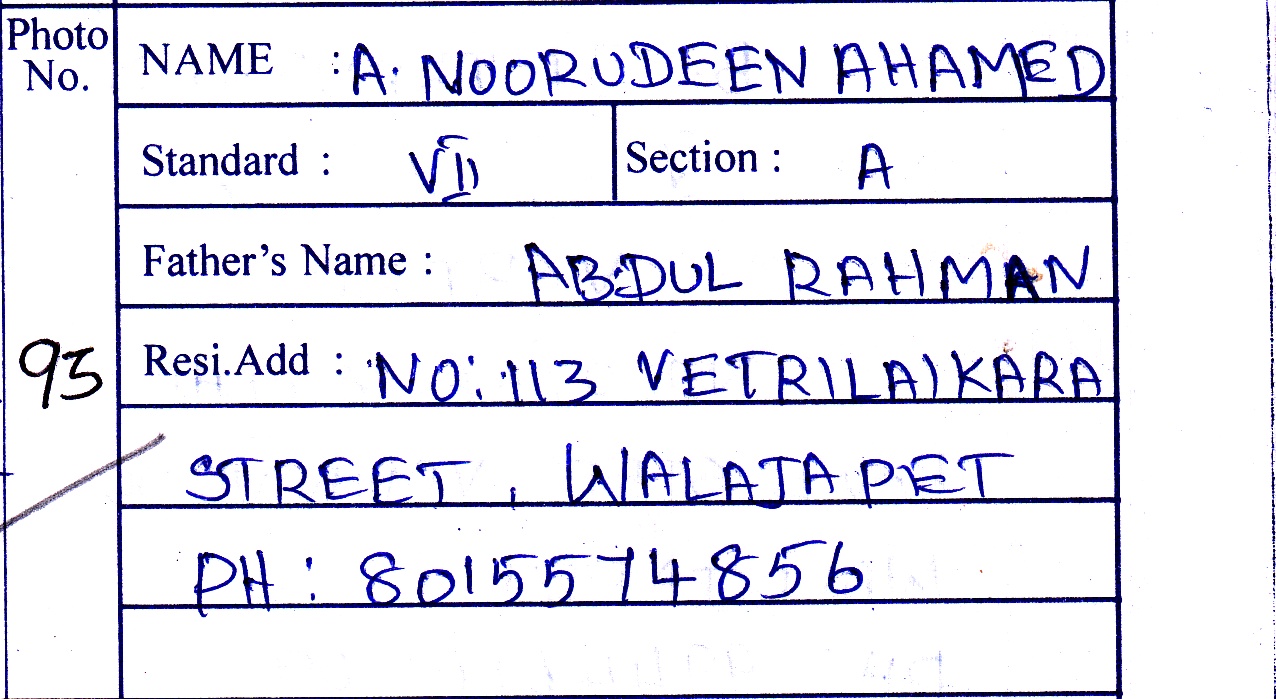 Photo No.
NAME : A. NOORUDEEN AHAMED
Standard : VII Section : A
Father's Name : ABDUL RAHMAN
93 Resi.Add : NO: 113 VETRILAIKARA
STREET, WALAJAPET
PH : 8015574856